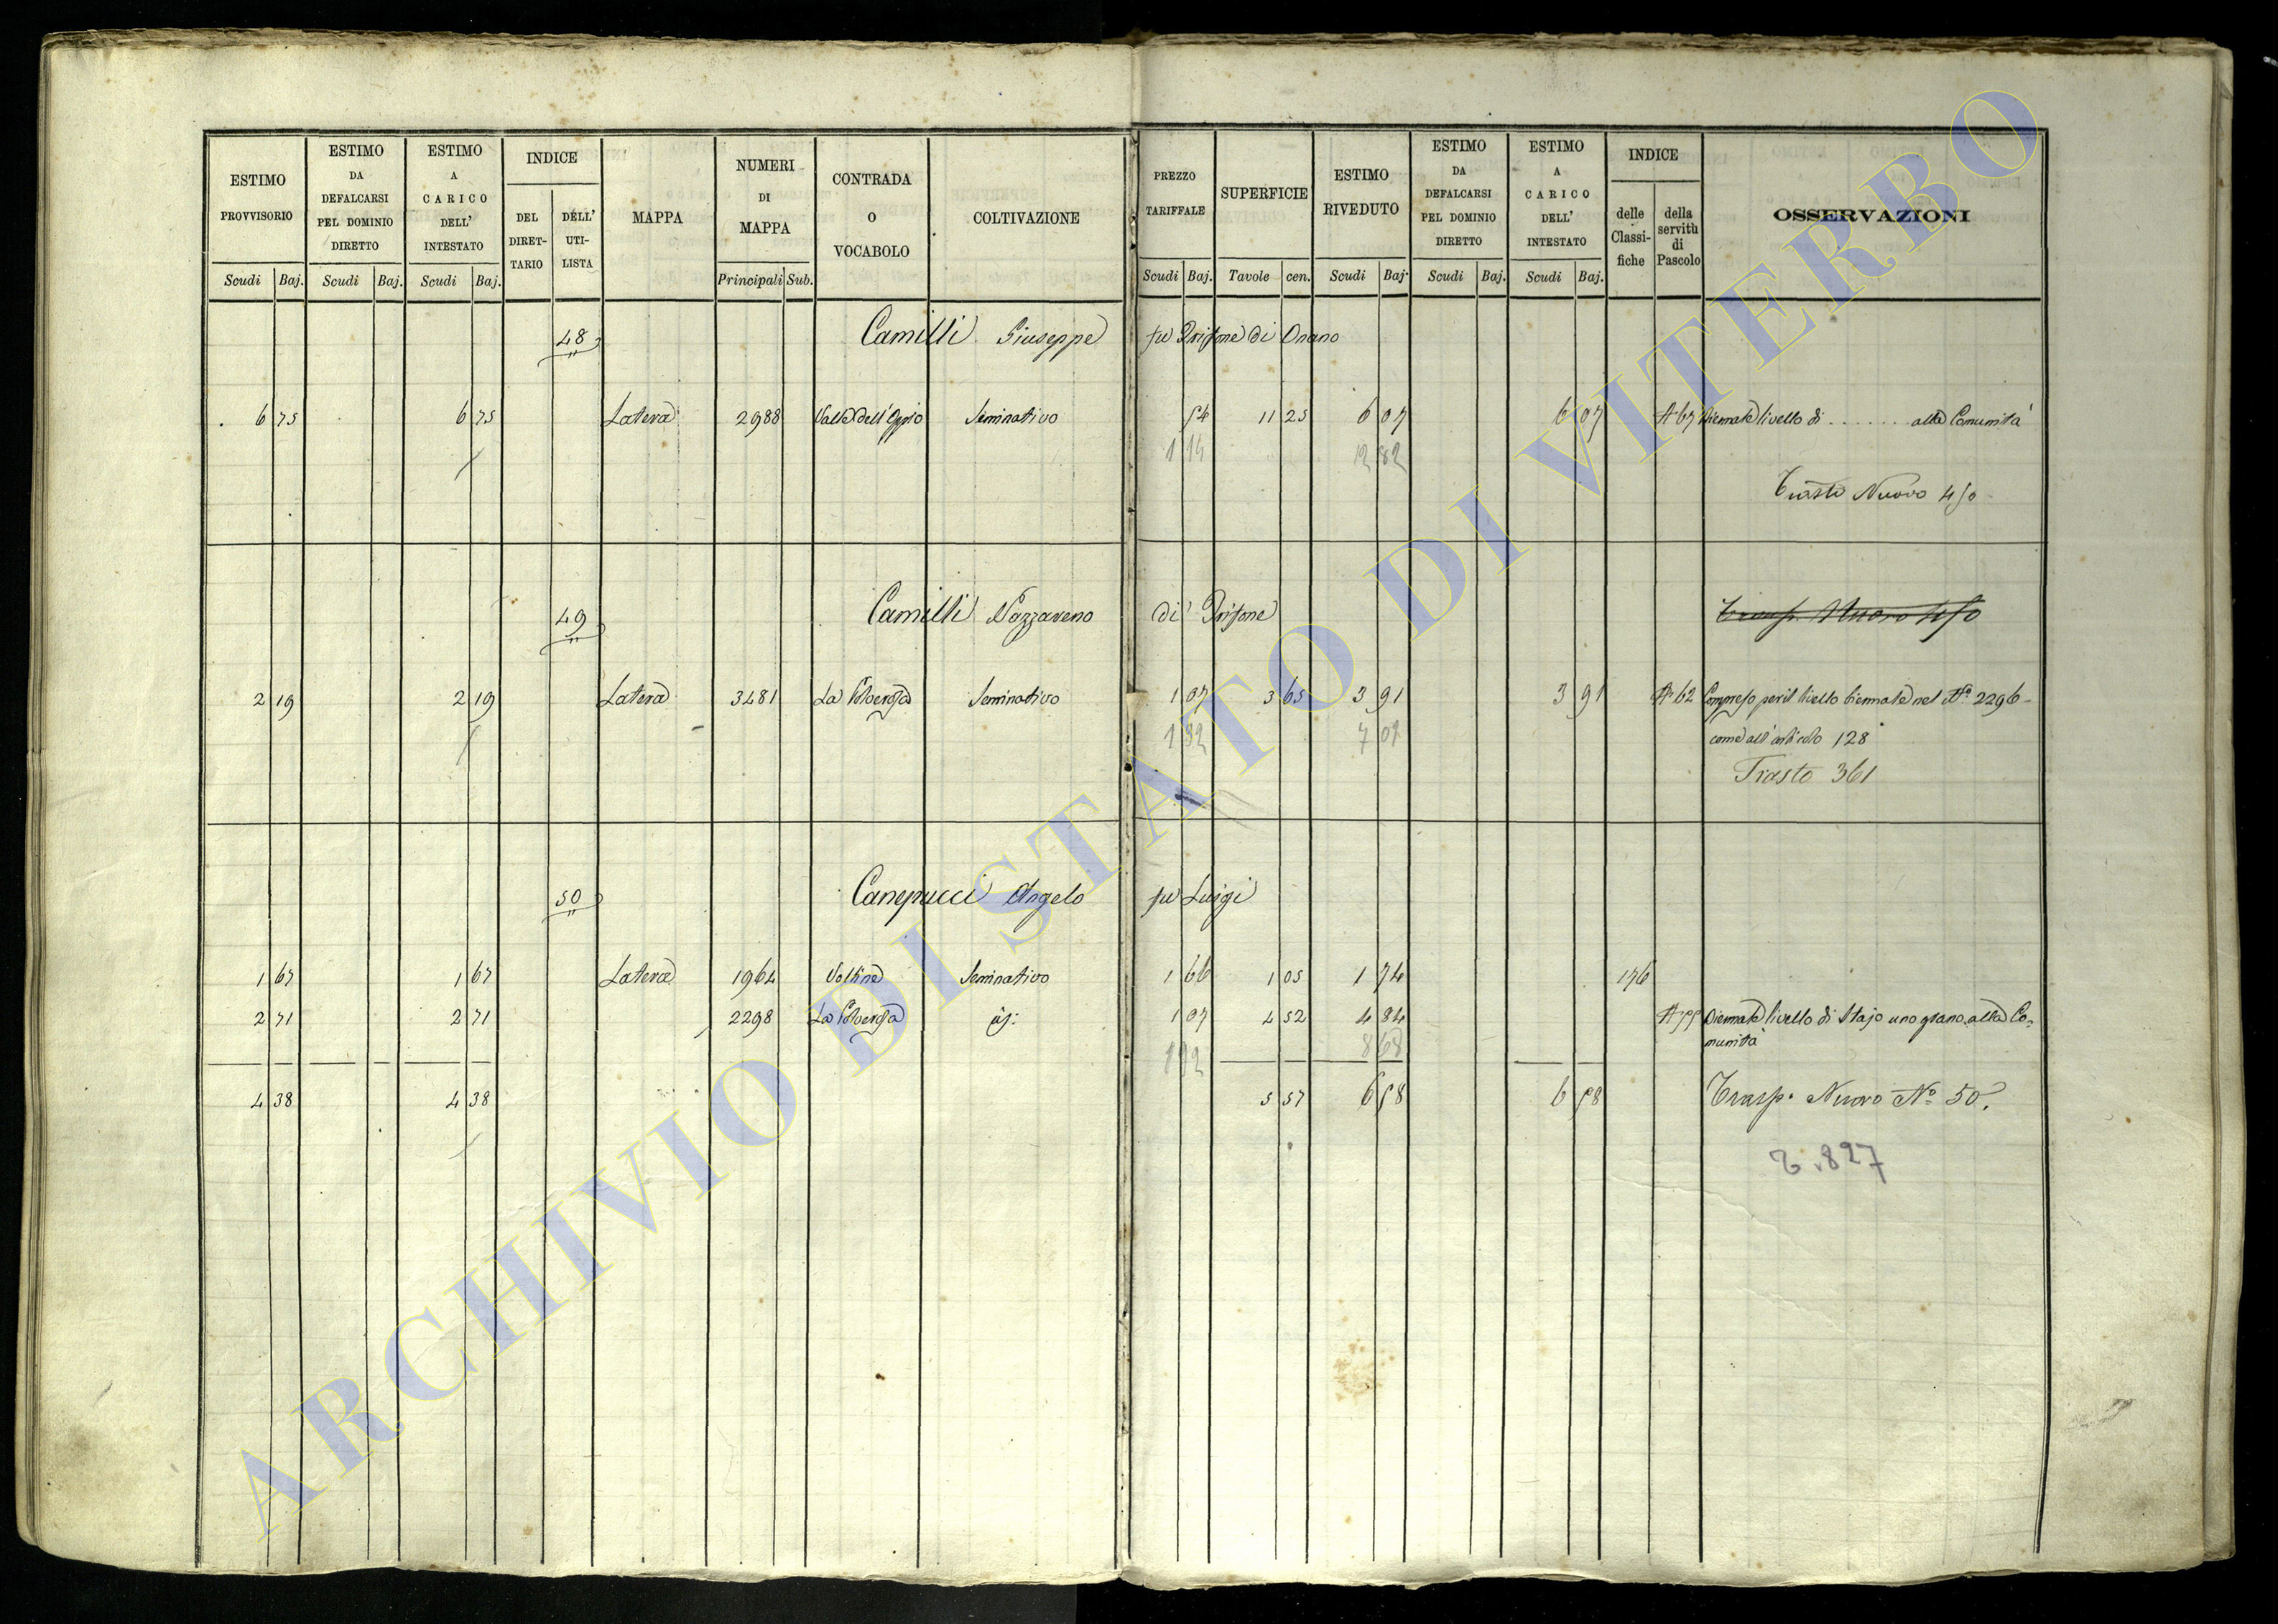 ESTIMO PROVVISORIO
ESTIMO DA DEFALCARSI PEL DOMINIO DIRETTO
ESTIMO A CARICO DELL' INTESTATO
INDICE
DEL DIRET- TARIO
DELL' UTI- LISTA
MAPPA
NUMERI DI MAPPA
CONTRADA O VOCABOLO
COLTIVAZIONE
PREZZO TARIFFALE
SUPERFICIE
ESTIMO RIVEDUTO
ESTIMO DA DEFALCARSI PEL DOMINIO DIRETTO
ESTIMO A CARICO DELL' INTESTATO
INDICE
delle Classi- fiche
della servitù di Pascolo
OSSERVAZIONI
Scudi Baj. Scudi Baj. Scudi Baj. Principali Sub. Scudi Baj. Tavole cen. Scudi Baj. Scudi Baj. Scudi Baj.
48 Camilli Giuseppe fu di Onano
6 75 6 75 Latera 2988 Seminativo 54 11 25 6 07 6 07 A 67 Biennale livello di . . . . . . . alla Comunità
1 14 12 82
Nuovo 450
49 Camilli Nazzareno di
2 19 2 19 Latera 3481 La Seminativo 1 07 3 65 3 91 3 91 A 62 Compreso per il livello biennale nel N.º 2296
1 92 7 01
come all' articolo 128
Trasto 361
50 Canepucci Angelo fu Luigi
1 67 1 67 Latera 1964 Voltine Seminativo 1 66 1 05 1 74 176
2 71 2 71 2298 La 1 07 4 52 4 84 Biennale livello di Stajo uno grano alla Co-
munità
1 92 8 68
4 38 4 38 5 57 6 58 6 58 Trasp. Nuovo Nº 50.
827
ARCHIVIO DI STATO DI VITERBO